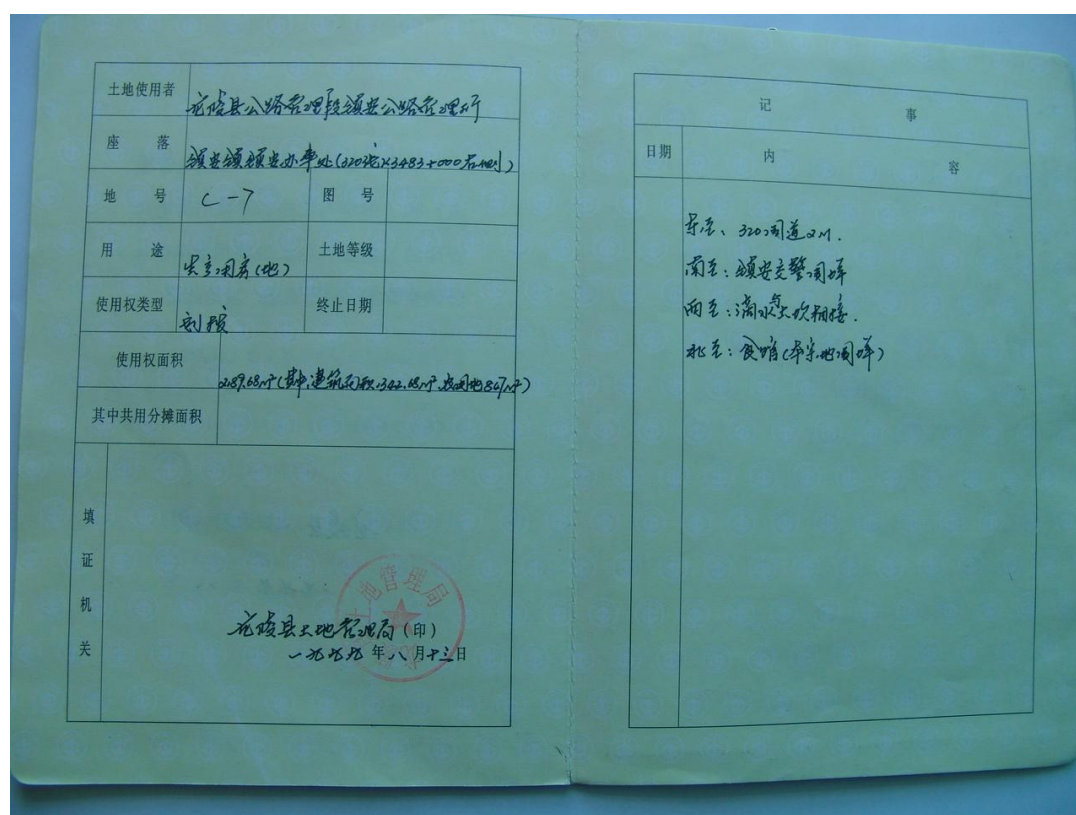 土地使用者 龙陵县公路管理段镇安公路管理所
座落 镇安镇镇安办事处(320线K3483+000右侧)
地号 C-7 图号
用途 生产用房(地) 土地等级
使用权类型 划拨 终止日期
使用权面积 2189.68m²(其中,建筑面积1342.68m²,
其中共用分摊面积
填证机关
土地管理局
龙陵县土地管理局(印)
一九九九年八月十三日
记事
日期 内容
东至:320国道
南至:镇安交警围墙
西至:滴水与大坎相接.
北至:食馆(本宗地围墙)